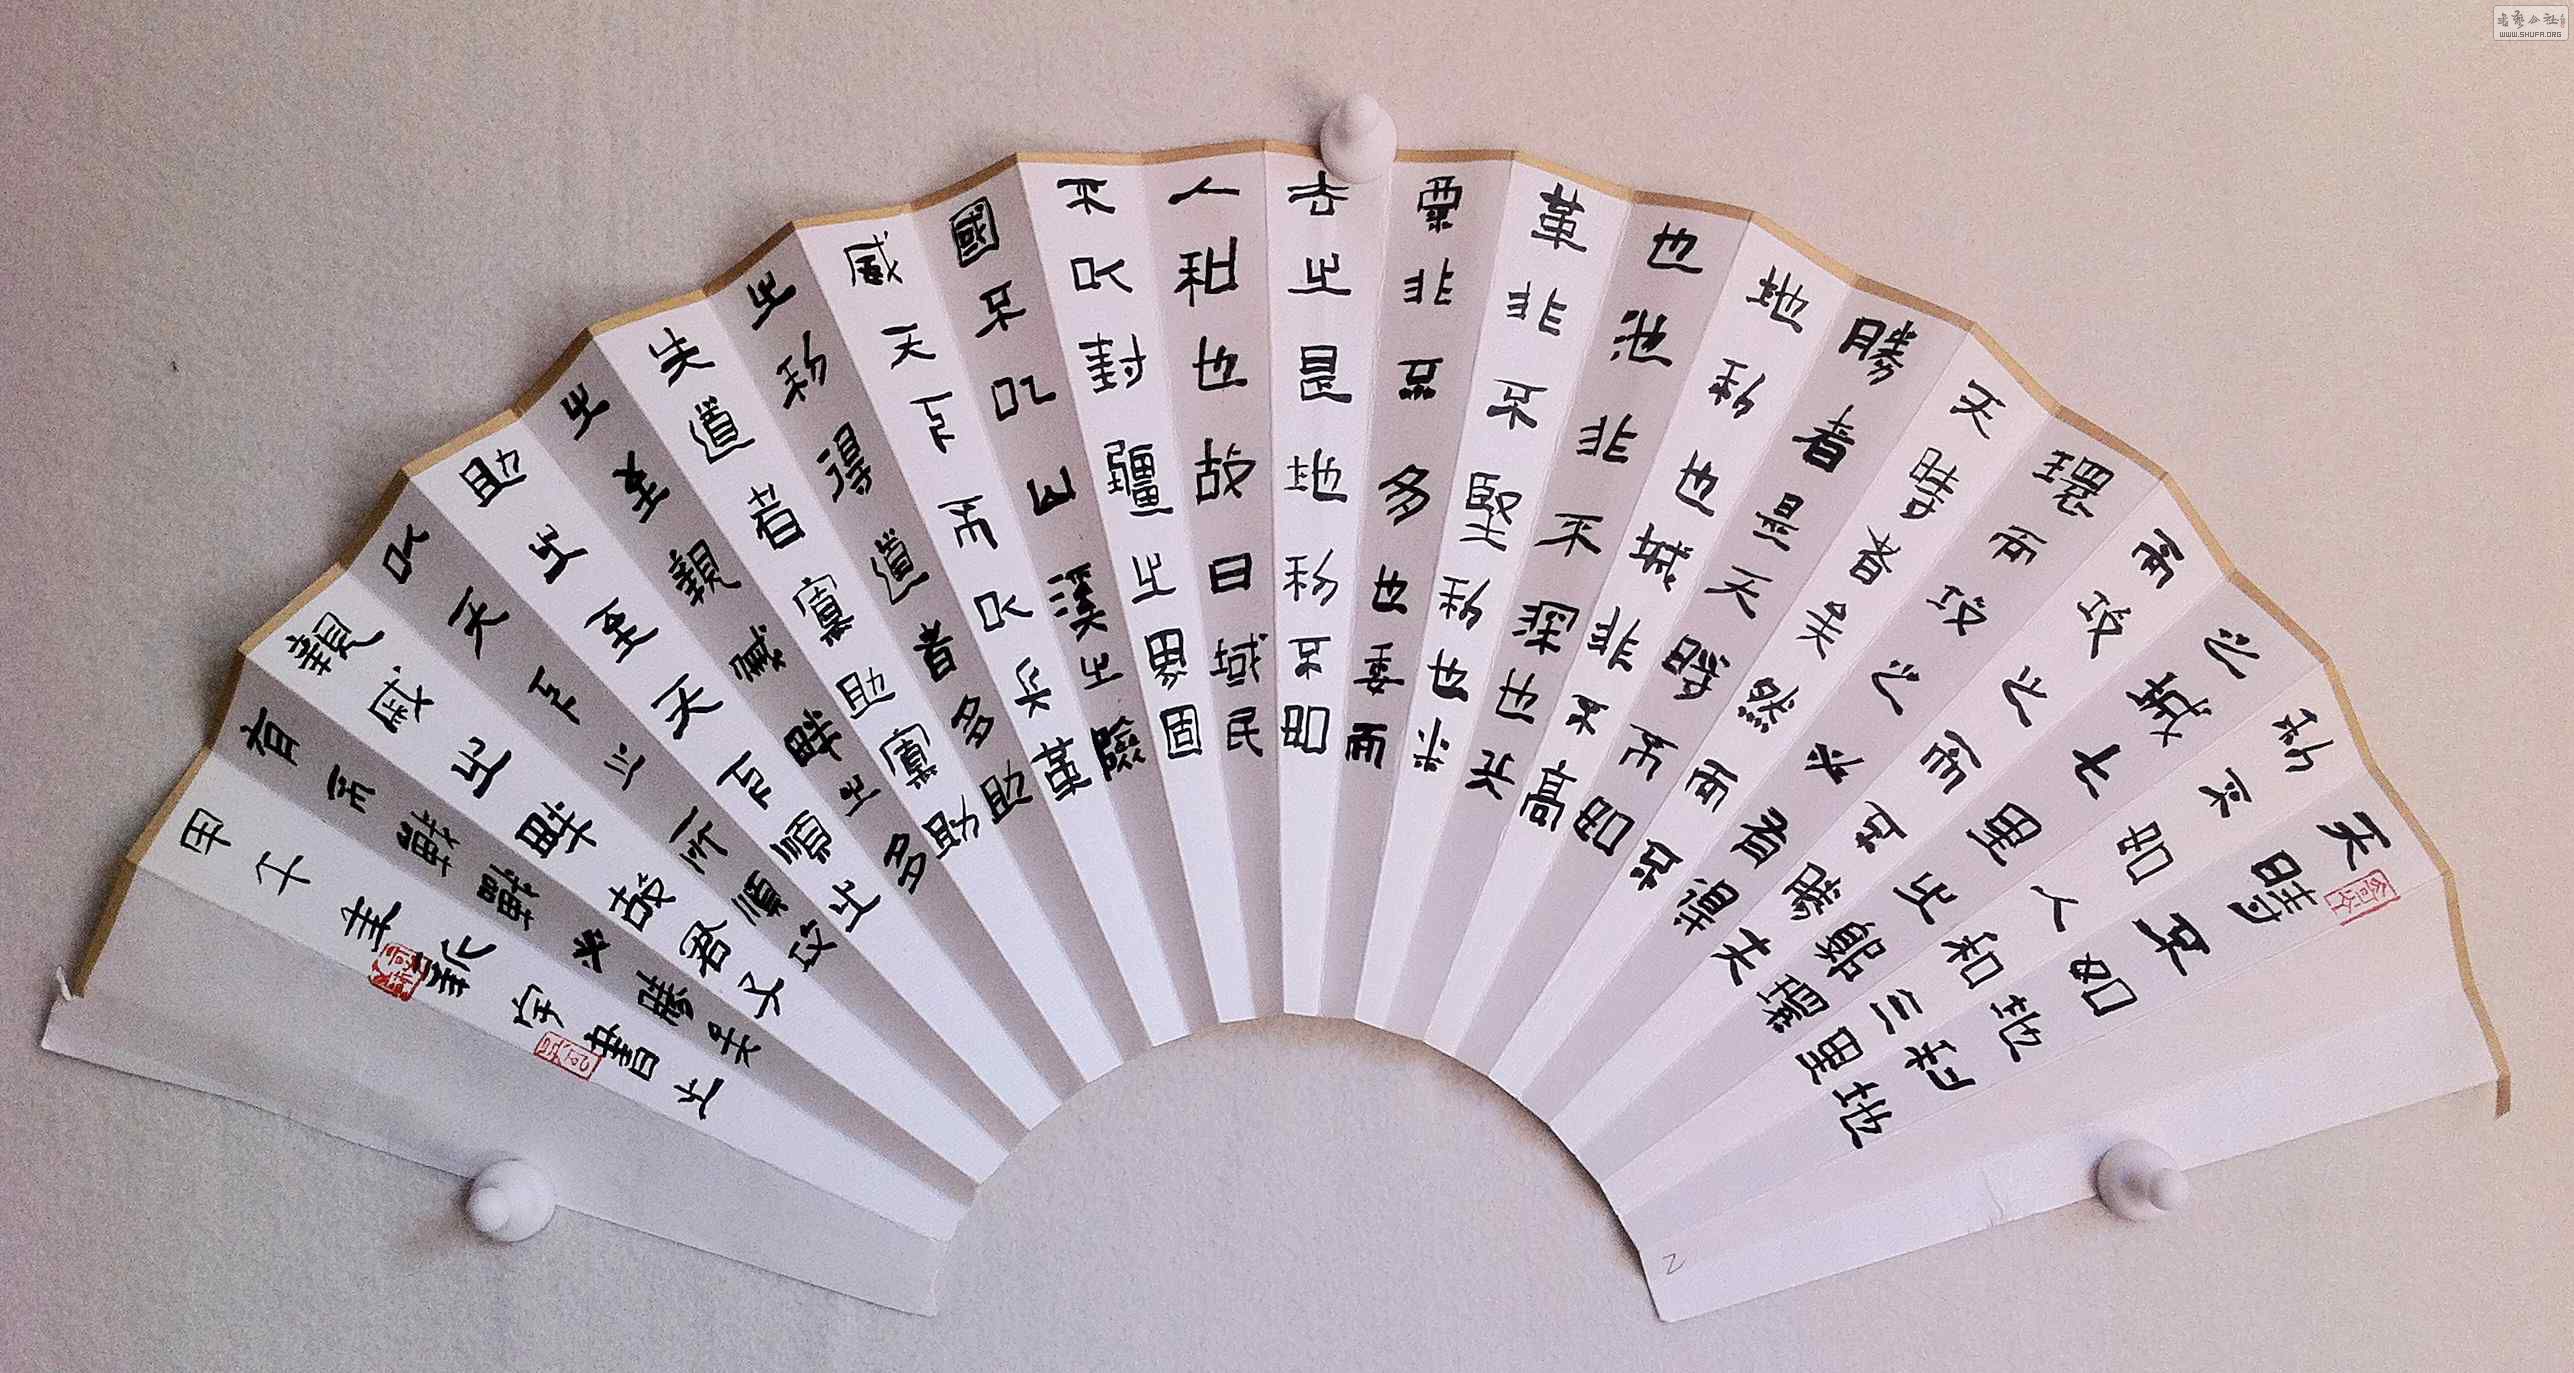 天時不如地利地
利不如人和三里
之城七里之郭環
而攻之而不勝夫
環而攻之必有得
天時者矣然而不
勝者是天時不如
地利也城非不高
也池非不深也兵
革非不堅利也米
粟非不多也委而
去之是地利不如
人和也故曰域民
不以封疆之界固
國不以山溪之險
威天下不以兵革
之利得道者多助
失道者寡助寡助
之至親戚畔之多
助之至天下順之
以天下之所順攻
親戚之畔故君子
有不戰戰必勝矣
甲午宇書之
WWW.SHUFA.ORG